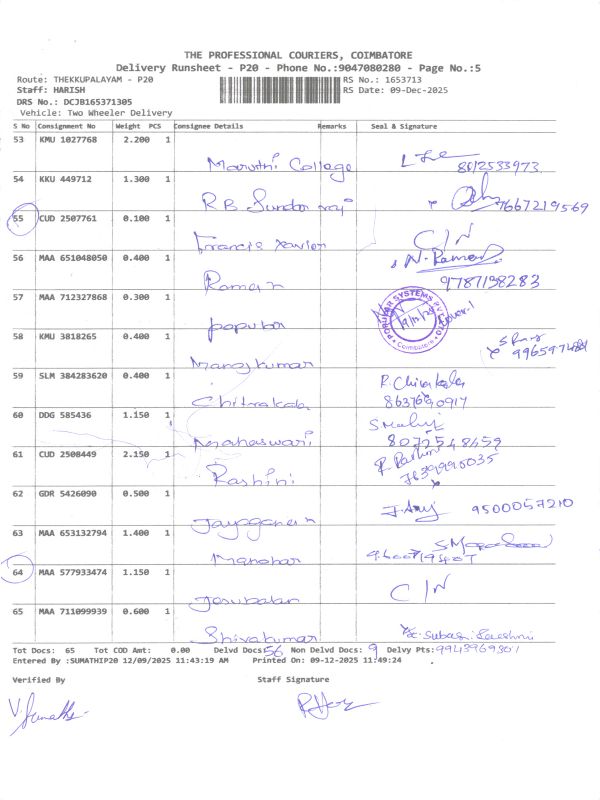 THE PROFESSIONAL COURIERS, COIMBATORE
Delivery Runsheet - P20 - Phone No.:9047080280 - Page No.:5
Route: THEKKUPALAYAM - P20 RS No.: 1653713
Staff: HARISH RS Date: 09-Dec-2025
DRS No.: DCJB165371305
Vehicle: Two Wheeler Delivery
S No Consignment No Weight PCS Consignee Details Remarks Seal & Signature
53 KMU 1027768 2.200 1
Maruthi College 8012533973
54 KKU 449712 1.300 1
RB Sundar raj 7667219569
55 CUD 2507761 0.100 1
Francis Xavier C/N
56 MAA 651048050 0.400 1 N. Raman
Raman 9787138283
57 MAA 712327868 0.300 1
58 KMU 3818265 0.400 1
Manoj kumar
59 SLM 384283620 0.400 1 R. Chitrakala
Chitrakala
60 DDG 585436 1.150 1
Mahaswari 8072548459
61 CUD 2508449 2.150 1 R. Rashini
Rashini 7639990035
62 GDR 5426090 0.500 1
9500057210
63 MAA 653132794 1.400 1
Manohar
64 MAA 577933474 1.150 1 C/N
65 MAA 711099939 0.600 1
Shivakumar
Tot Docs: 65 Tot COD Amt: 0.00 Delvd Docs: 56 Non Delvd Docs: 9 Delvy Pts:
Entered By :SUMATHIP20 12/09/2025 11:43:19 AM Printed On: 09-12-2025 11:49:24
Verified By Staff Signature